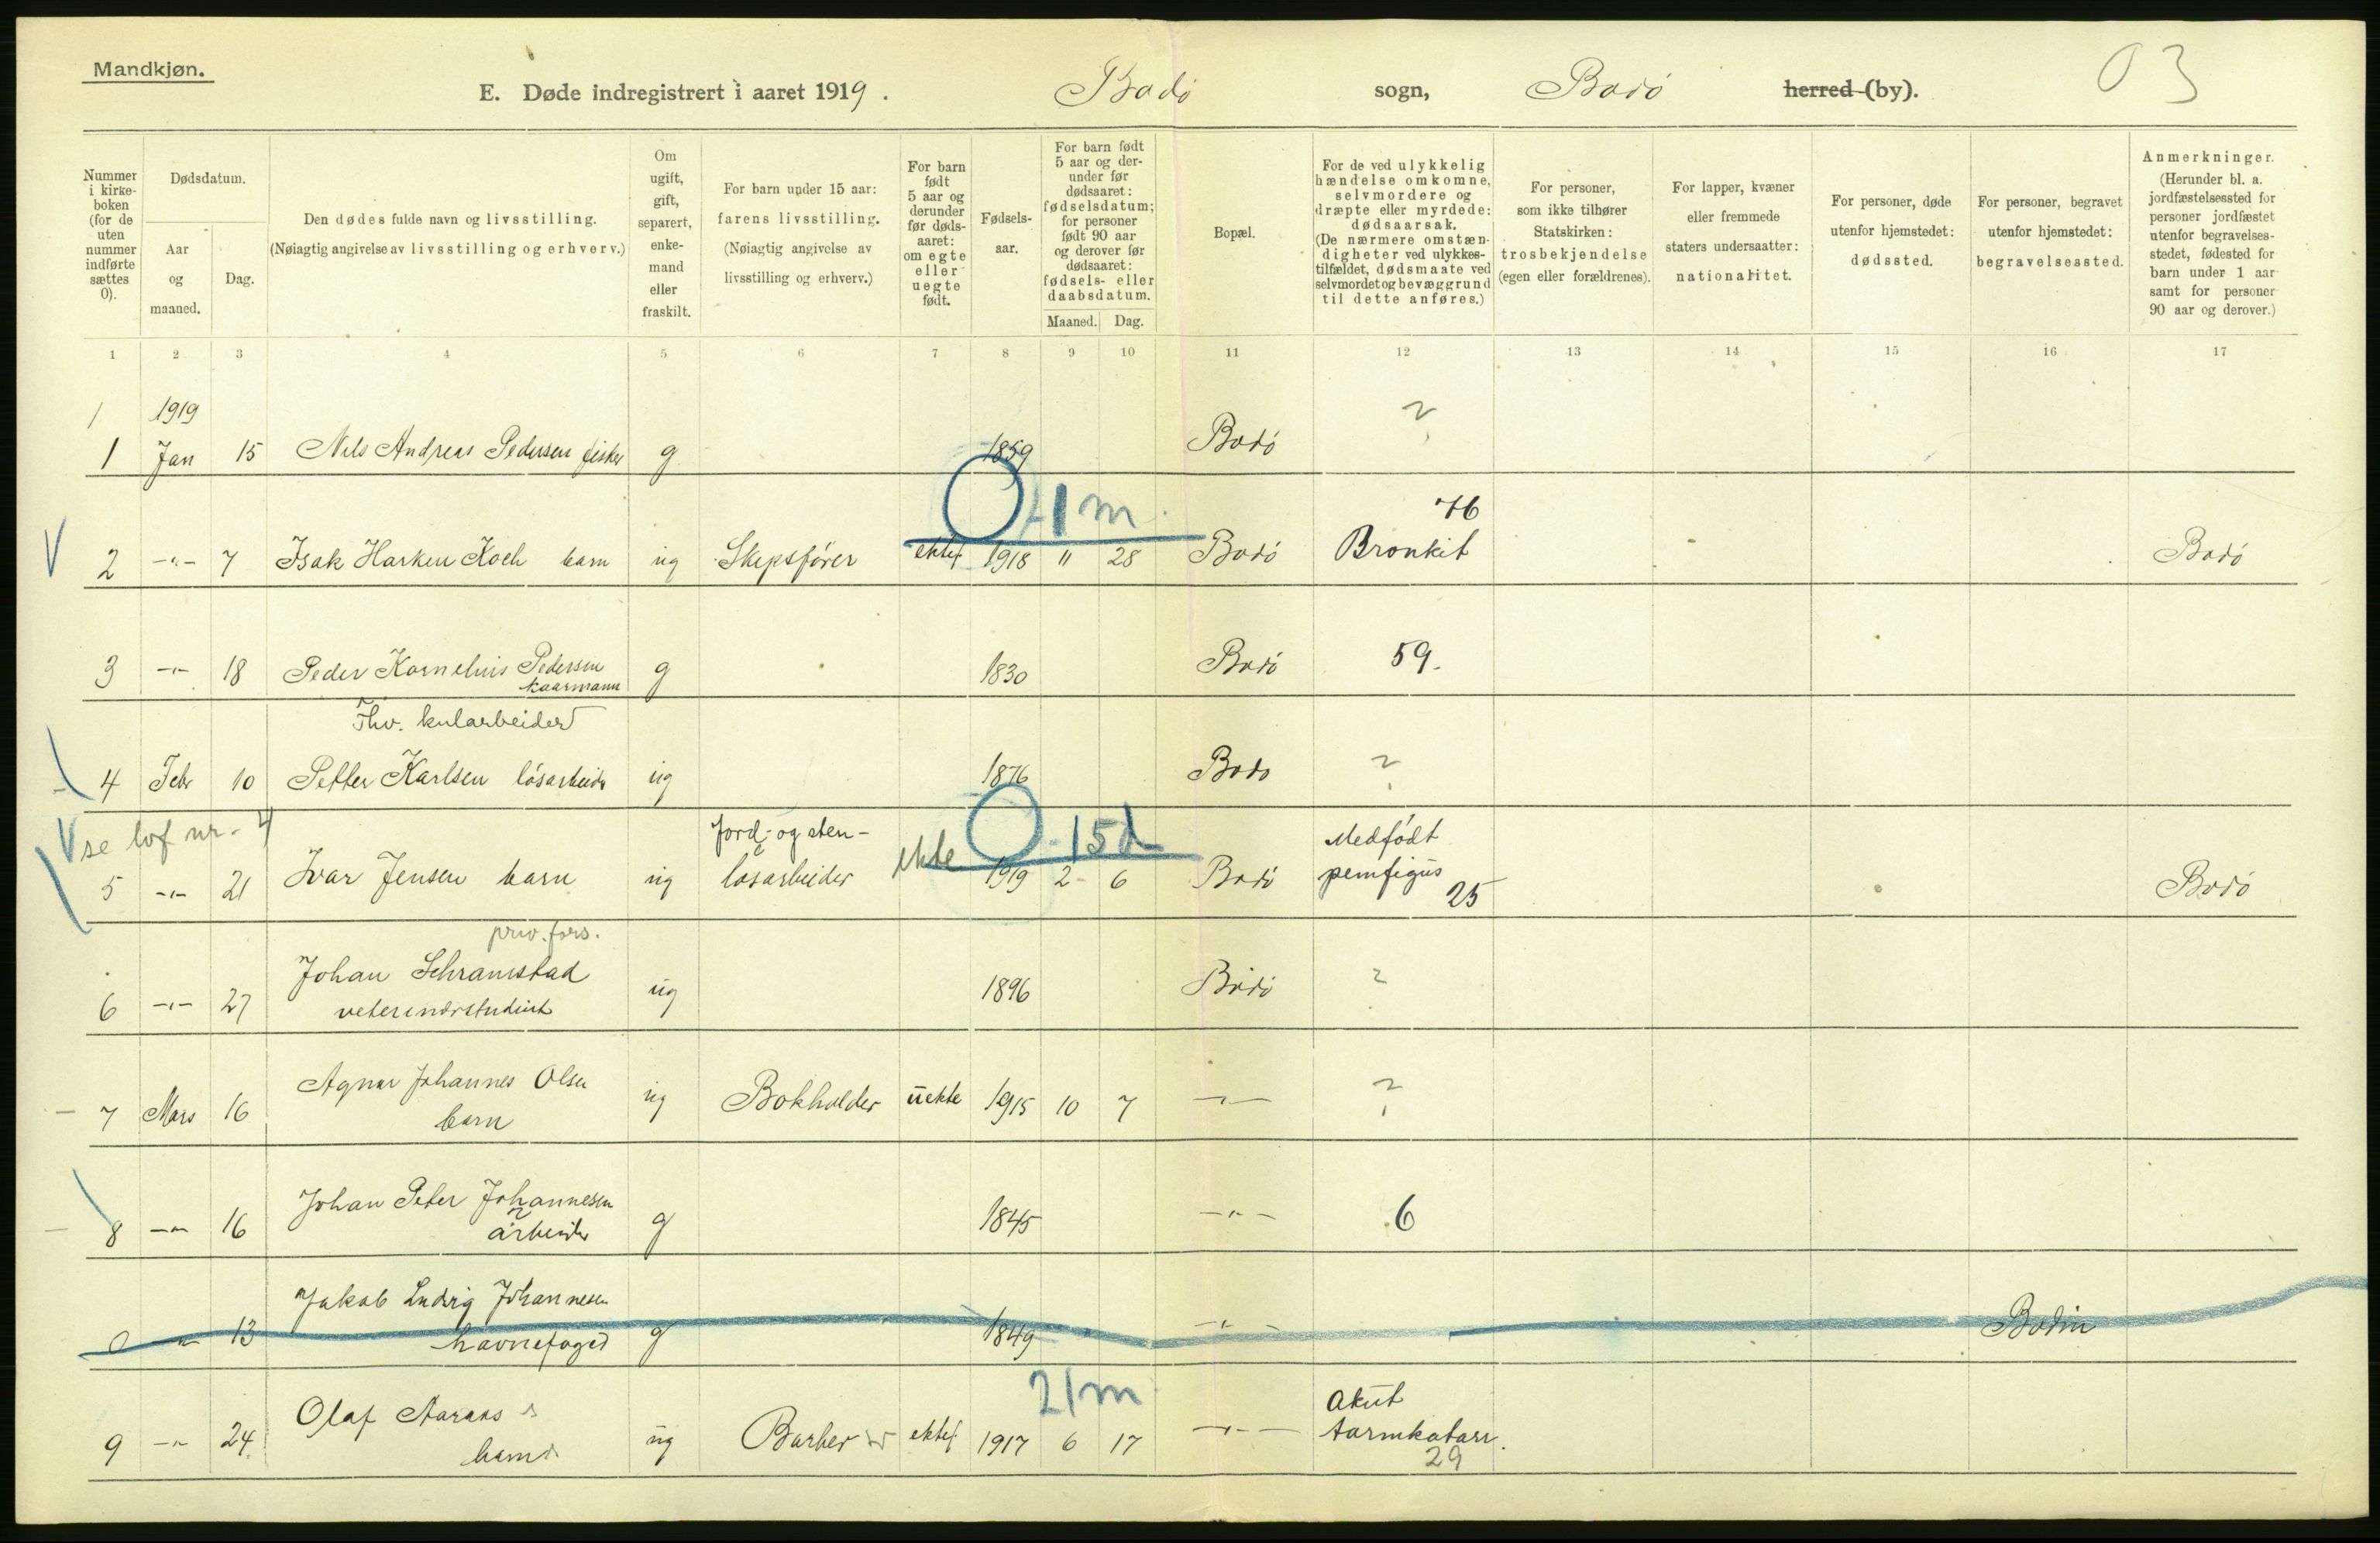 Mandkjøn.
E. Døde indregistrert i aaret 1919. Bodö sogn, Bodö herred (by). 03
Nummer i kirke-boken (for de uten nummer indførte sættes 0).
Dødsdatum.
Aar og maaned.
Dag.
Den dødes fulde navn og livsstilling.
(Nøiagtig angivelse av livsstilling og erhverv.)
Om ugift, gift, separert, enke-mand eller fraskilt.
For barn under 15 aar:
farens livsstilling.
(Nøiagtig angivelse av livsstilling og erhverv.)
For barn født 5 aar og derunder før døds-aaret: om egte eller uegte født.
Fødsels-aar.
For barn født 5 aar og der-under før dødsaaret: fødselsdatum; for personer født 90 aar og derover før dødsaaret: fødsels- eller daabsdatum.
Maaned. Dag.
Bopæl.
For de ved ulykkelig hændelse omkomne, selvmordere og dræpte eller myrdede: dødsaarsak.
(De nærmere omstæn-digheter ved ulykkes-tilfældet, dødsmaate ved selvmordet og bevæggrund til dette anføres.)
For personer, som ikke tilhører Statskirken: trosbekjendelse (egen eller forældrenes).
For lapper, kvæner eller fremmede staters undersaatter: nationalitet.
For personer, døde utenfor hjemstedet: dødssted.
For personer, begravet utenfor hjemstedet: begravelsessted.
Anmerkninger.
(Herunder bl. a. jordfæstelsessted for personer jordfæstet utenfor begravelses-stedet, fødested for barn under 1 aar samt for personer 90 aar og derover.)
1 2 3 4 5 6 7 8 9 10 11 12 13 14 15 16 17
1 1919 ?
1 Jan 15 Nils Andreas Pedersen fisker g 1859 Bodö
0 - 1 m 76
V 2 -"- 7 Isak Harken Koch barn ug Skipsfører ektef 1918 11 28 Bodö Bronkit Bodö
3 -"- 18 Peder Kornelius Pedersen g 1830 Bodö 59.
kaarmann
Fhv. kularbeider
4 Febr 10 Petter Karlsen lösarbeider ug 1876 Bodö ?
V se lof nr. 4 Jord- og sten- 0 - 15 d Medfødt
5 -"- 21 Ivar Jensen barn ug løsarbeider ekte 1919 2 6 Bodö pemfigus Bodö
25
priv. fors.
6 -"- 27 Johan Schramstad ug 1896 Bodö ?
veterinærstudent
7 Mars 16 Agnar Johannes Olsen ug Bokholder uekte 1915 10 7 -"- ?
barn
8 -"- 16 Johan Peter Johannesen g 1845 -"- 6
arbeider
0 -"- 13 Jakob Ludvig Johannesen g 1849 -"- Bodin
havnefoged
21 m Akut
9 -"- 24 Olaf barn ug Barber ektef 1917 6 17 -"- tarmkatarr.
29